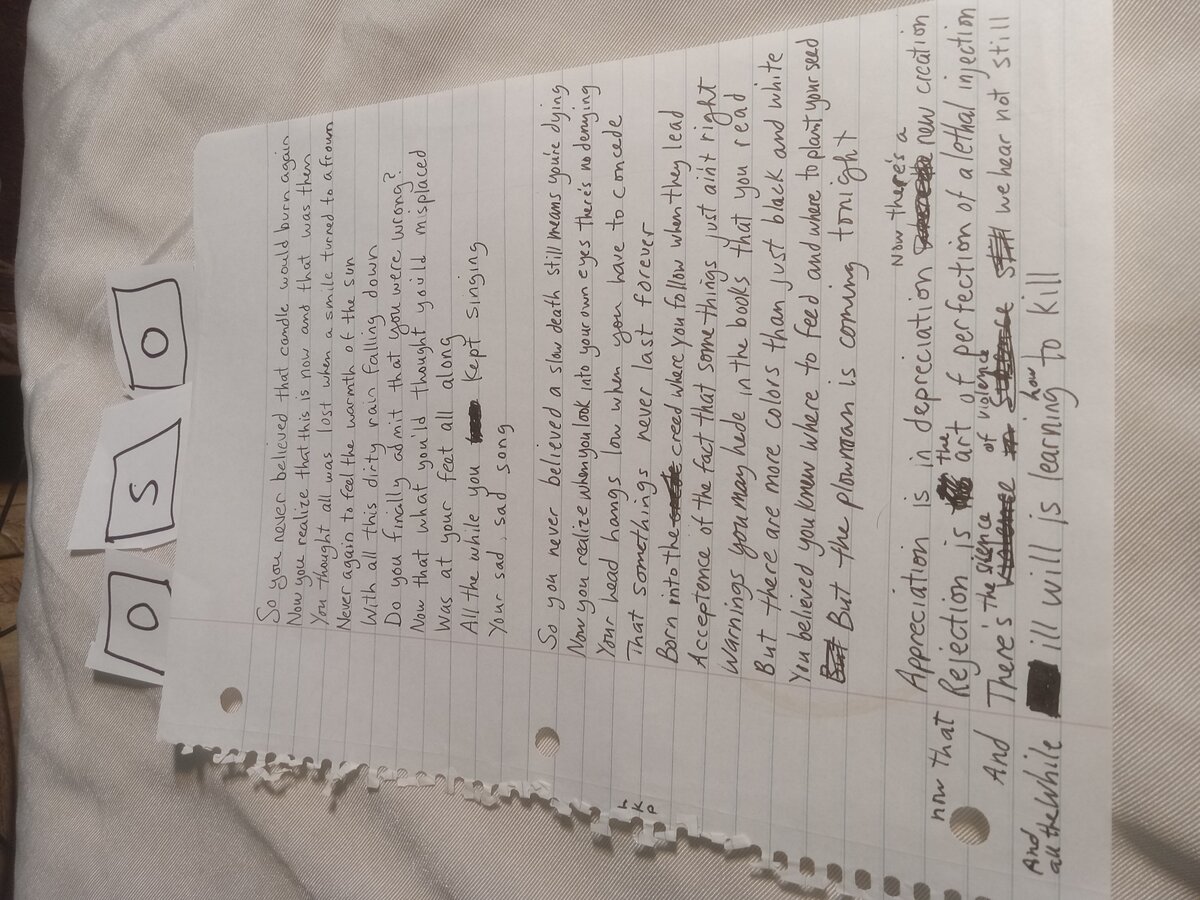 O S O
So you never believed that candle would burn again
Now you realize that this is now and that was then
You thought all was lost when a smile turned to a frown
Never again to feel the warmth of the sun
With all this dirty rain falling down
Do you finally admit that you were wrong?
Now that what you'ld thought you'ld misplaced
Was at your feet all along
All the while you kept singing
Your sad, sad song
So you never believed a slow death still means you're dying
Now you realize when you look into your own eyes there's no denying
Your head hangs low when you have to concede
That somethings never last forever
Born into the creed where you follow when they lead
Acceptence of the fact that some things just ain't right
Warnings you may hede in the books that you read
But there are more colors than just black and white
You believed you knew where to feed and where to plant your seed
But But the plowman is coming tonight
h
K
P
Now there's a
Appreciation is in depreciation new creation
now that Rejection is the art of perfection of a lethal injection
And There's the sience of violence still we hear not still
And all the while ill will is learning how to kill